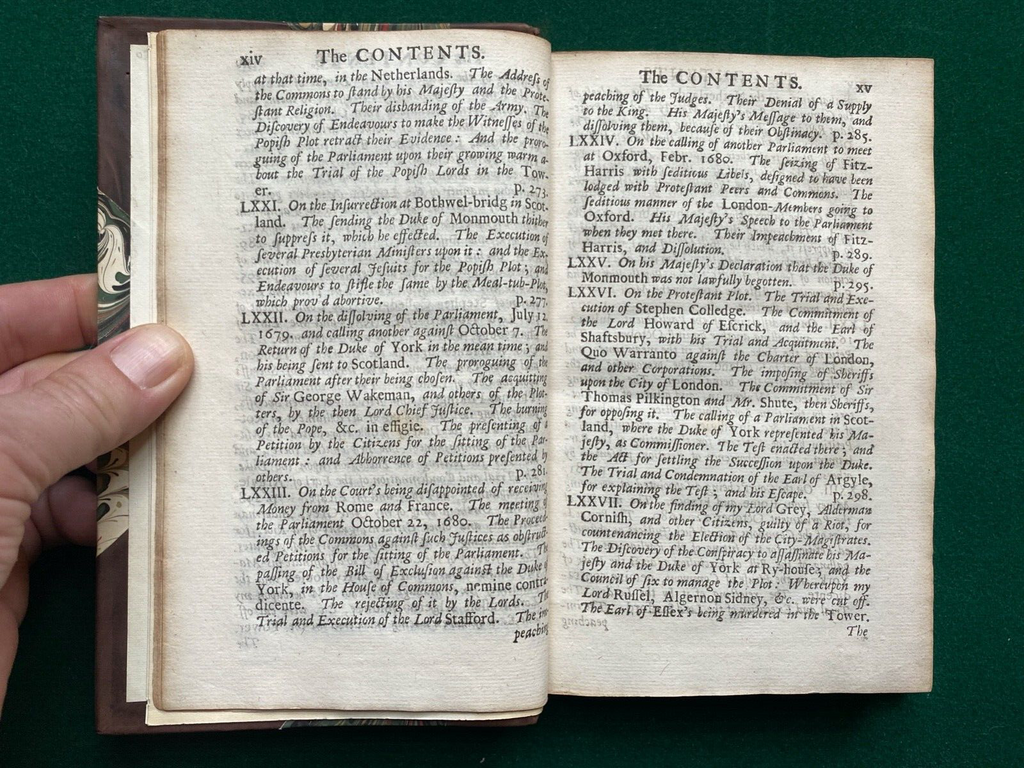 xiv The CONTENTS.
at that time, in the Netherlands. The Addreſs of
the Commons to ſtand by his Majeſty and the Prote-
ſtant Religion. Their disbanding of the Army. The
Diſcovery of Endeavours to make the Witneſſes of the
Popiſh Plot retract their Evidence: And the proro-
guing of the Parliament upon their growing warm a-
bout the Trial of the Popiſh Lords in the Tow-
er. p. 273.
LXXI. On the Inſurrection at Bothwel-bridg in Scot-
land. The ſending the Duke of Monmouth thither
to ſuppreſs it, which he effected. The Execution of
ſeveral Presbyterian Miniſters upon it: and the Ex-
ecution of ſeveral Jeſuits for the Popiſh Plot; and
Endeavours to ſtifle the ſame by the Meal-tub-Plot,
which prov'd abortive. p. 277.
LXXII. On the diſſolving of the Parliament, July 12.
1679. and calling another againſt October 7. The
Return of the Duke of York in the mean time; and
his being ſent to Scotland. The proroguing of the
Parliament after their being choſen. The acquitting
of Sir George Wakeman, and others of the Plot-
ters, by the then Lord Chief Juſtice. The burning
of the Pope, &c. in effigie. The preſenting of a
Petition by the Citizens for the ſitting of the Par-
liament: and Abhorrence of Petitions preſented by
others. p. 281.
LXXIII. On the Court's being diſappointed of receiving
Money from Rome and France. The meeting of
the Parliament October 22, 1680. The Proceed-
ings of the Commons againſt ſuch Juſtices as obſtruct-
ed Petitions for the ſitting of the Parliament. The
paſſing of the Bill of Excluſion againſt the Duke of
York, in the Houſe of Commons, nemine contra-
dicente. The rejecting of it by the Lords. The
Trial and Execution of the Lord Stafford. The im-
peaching
The CONTENTS. xv
peaching of the Judges. Their Denial of a Supply
to the King. His Majeſty's Meſſage to them, and
diſſolving them, becauſe of their Obſtinacy. p. 285.
LXXIV. On the calling of another Parliament to meet
at Oxford, Febr. 1680. The ſeizing of Fitz-
Harris with ſeditious Libels, deſigned to have been
lodged with Proteſtant Peers and Commons. The
ſeditious manner of the London-Members going to
Oxford. His Majeſty's Speech to the Parliament
when they met there. Their Impeachment of Fitz-
Harris, and Diſſolution. p. 289.
LXXV. On his Majeſty's Declaration that the Duke of
Monmouth was not lawfully begotten. p. 295.
LXXVI. On the Proteſtant Plot. The Trial and Exe-
cution of Stephen Colledge. The Commitment of
the Lord Howard of Eſcrick, and the Earl of
Shaftsbury, with his Trial and Acquitment. The
Quo Warranto againſt the Charter of London,
and other Corporations. The impoſing of Sheriffs
upon the City of London. The Commitment of Sir
Thomas Pilkington and Mr. Shute, then Sheriffs,
for oppoſing it. The calling of a Parliament in Scot-
land, where the Duke of York repreſented his Ma-
jeſty, as Commiſſioner. The Teſt enacted there; and
the Act for ſettling the Succeſſion upon the Duke.
The Trial and Condemnation of the Earl of Argyle,
for explaining the Teſt; and his Eſcape. p. 298.
LXXVII. On the finding of my Lord Grey, Alderman
Corniſh, and other Citizens, guilty of a Riot, for
countenancing the Election of the City-Magiſtrates.
The Diſcovery of the Conſpiracy to aſſaſſinate his Ma-
jeſty and the Duke of York at Ry-houſe; and the
Council of ſix to manage the Plot: Whereupon my
Lord Ruſſel, Algernon Sidney, &c. were cut off.
The Earl of Eſſex's being murdered in the Tower.
The